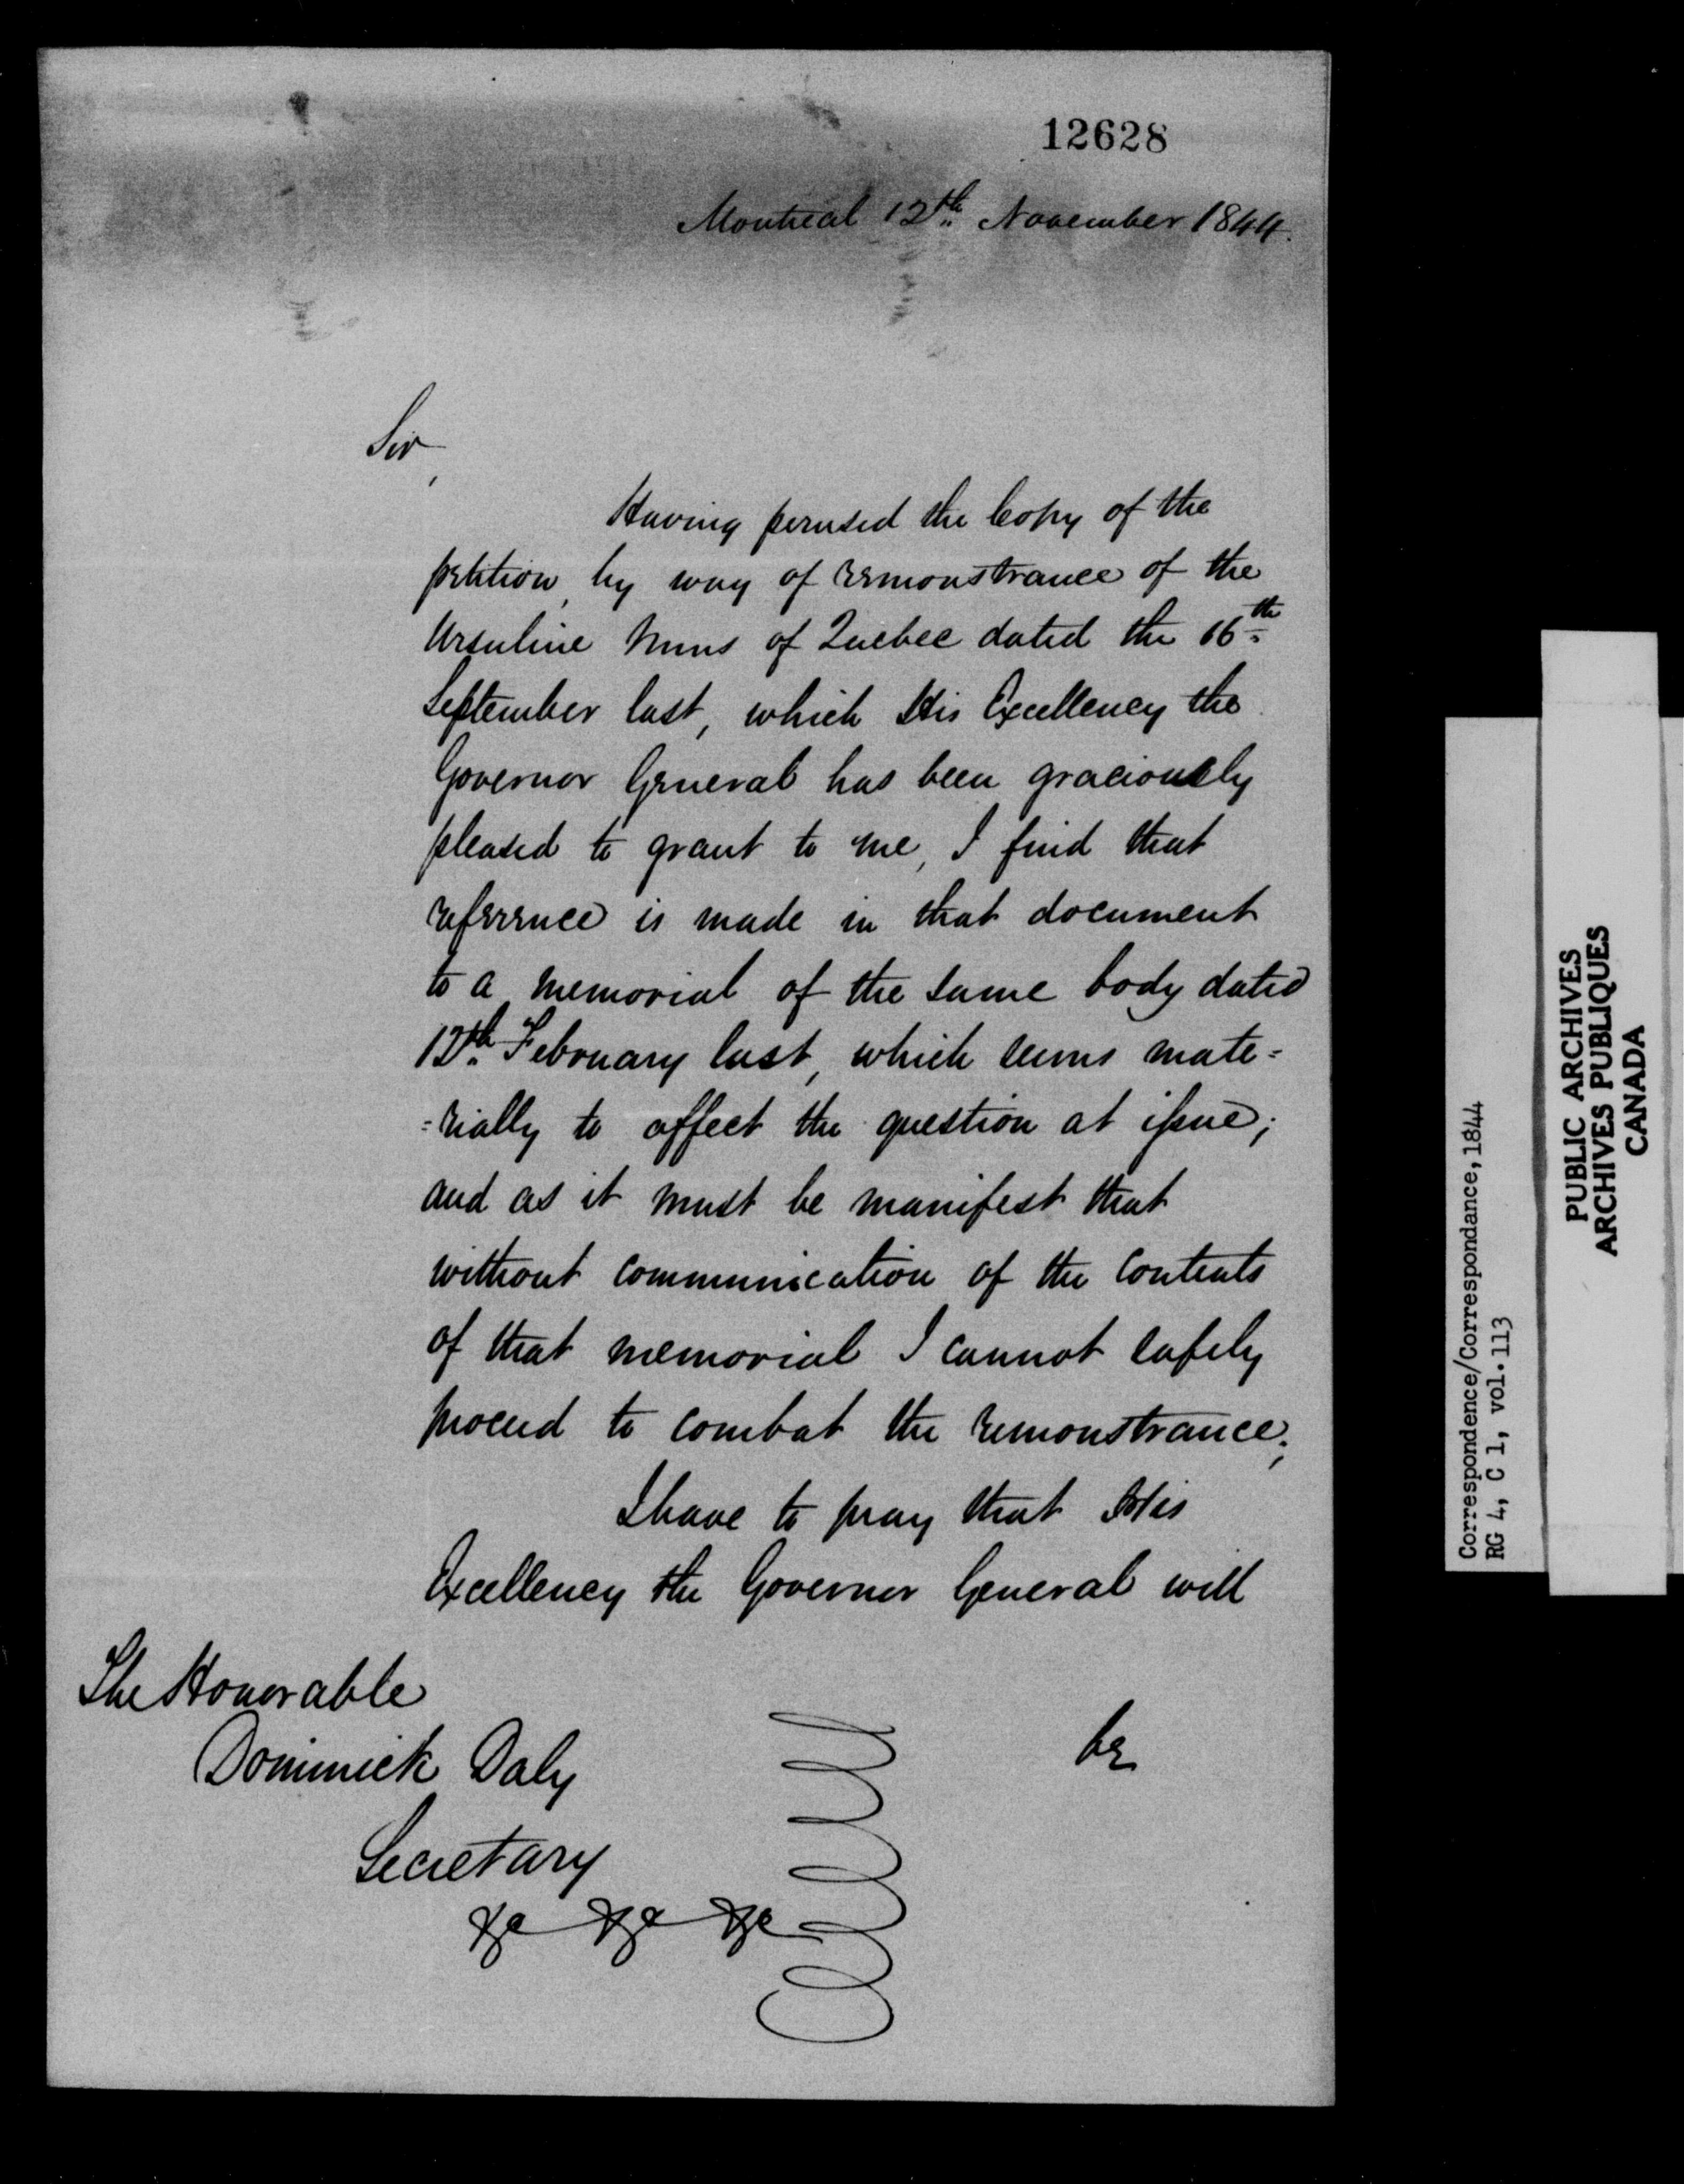 12628
Montreal 12th November 1844.
Sir,
Having perused the Copy of the
petition by way of remonstrance of the
Ursuline Nuns of Quebec dated the 16th
September last, which His Excellency the
Governor General has been graciously
pleased to grant to me, I find that
reference is made in that document
to a memorial of the same body dated
12th February last, which seems mate=
=rially to affect the question at issue;
and as it must be manifest that
without communication of the contents
of that memorial I cannot safely
proceed to combat the remonstrance;
I have to pray that His
Excellency the Governor General will
be
The Honorable
Dominick Daly
Secretary
&c &c &c
Correspondence/Correspondance, 1844
RG 4, C 1, vol. 113
PUBLIC ARCHIVES
ARCHIVES PUBLIQUES
CANADA